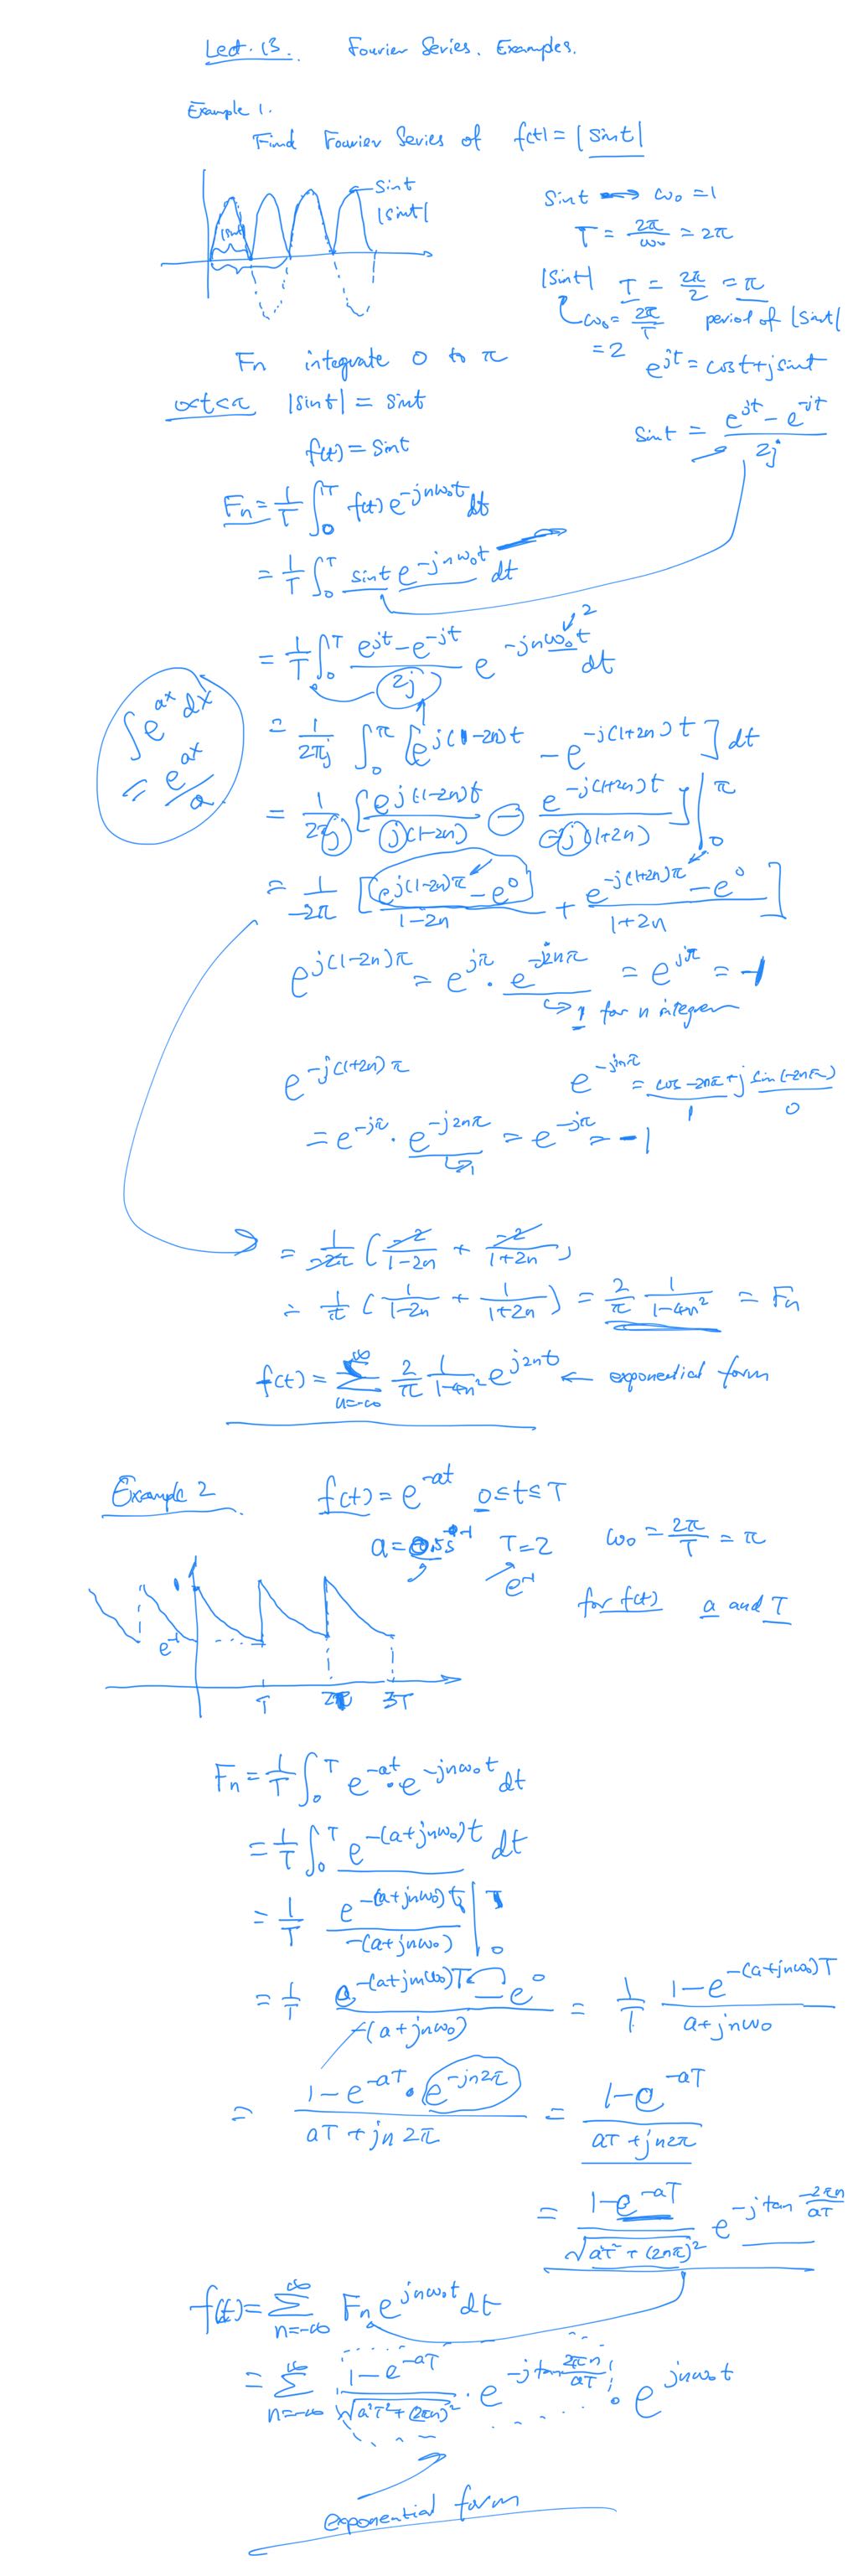 Lect. 13. Fourier Series. Examples.
Example 1.
Find Fourier Series of f(t) = |sint|
sint
|sint|
|sint|
sint → ω₀ = 1
T = 2π/ω₀ = 2π
|sint| T = 2π/2 = π
ω₀ = 2π/T period of |sint|
= 2
e^{jt} = cost + jsint
sint = (e^{jt} - e^{-jt})/2j
Fn integrate 0 to π
0<t<π |sint| = sint
f(t) = sint
Fn = 1/T ∫₀^T f(t) e^{-jnω₀t} dt
= 1/T ∫₀^T sint e^{-jnω₀t} dt
= 1/T ∫₀^T (e^{jt} - e^{-jt})/2j e^{-jnω₀t} dt
2
∫e^{ax} dx
= e^{ax}/a
= 1/2πj ∫₀^π [e^{j(1-2n)t} - e^{-j(1+2n)t}] dt
= 1/2πj [e^{j(1-2n)t}/j(1-2n) - e^{-j(1+2n)t}/-j(1+2n)] |₀^π
= 1/-2π [(e^{j(1-2n)π} - e⁰)/(1-2n) + (e^{-j(1+2n)π} - e⁰)/(1+2n)]
e^{j(1-2n)π} = e^{jπ} · e^{-j2nπ} = e^{jπ} = -1
↳ 1 for n integer
e^{-j(1+2n)π}
e^{-j2nπ} = cos -2nπ + j sin(-2nπ)
1 0
= e^{-jπ} · e^{-j2nπ} = e^{-jπ} = -1
↳ 1
= 1/-2π (-2/(1-2n) + -2/(1+2n))
= 1/π (1/(1-2n) + 1/(1+2n)) = 2/π 1/(1-4n²) = Fn
f(t) = ∑_{n=-∞}^{∞} 2/π 1/(1-4n²) e^{j2nt} ← exponential form
Example 2 f(t) = e^{-at} 0≤t≤T
a = 0.5s^{-1} T=2 ω₀ = 2π/T = π
e^{-1}
for f(t) a and T
1
e^{-1}
T 2T 3T
Fn = 1/T ∫₀^T e^{-at}·e^{-jnω₀t} dt
= 1/T ∫₀^T e^{-(a+jnω₀)t} dt
= 1/T e^{-(a+jnω₀)t}/-(a+jnω₀) |₀^T
= 1/T (e^{-(a+jnω₀)T} - e⁰)/-(a+jnω₀) = 1/T (1-e^{-(a+jnω₀)T})/(a+jnω₀)
= (1-e^{-aT}·e^{-jn2π})/(aT+jn2π) = (1-e^{-aT})/(aT+jn2π)
= (1-e^{-aT})/√(a²T²+(2nπ)²) e^{-j tan^{-} 2πn/aT}
f(t) = ∑_{n=-∞}^{∞} Fn e^{jnω₀t} dt
= ∑_{n=-∞}^{∞} (1-e^{-aT})/√(a²T²+(2πn)²) · e^{-jtan^{-} 2πn/aT} · e^{jnω₀t}
exponential form